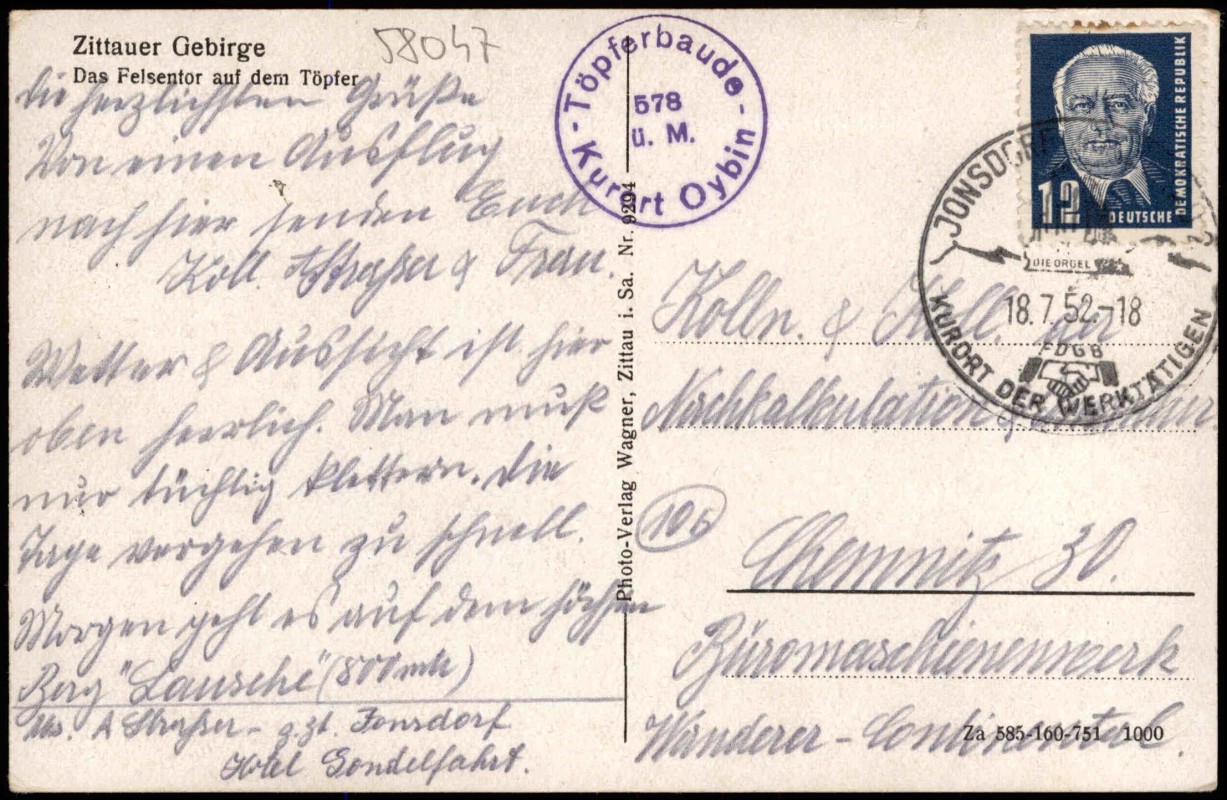 Zittauer Gebirge
Das Felsentor auf dem Töpfer
58047
Die herzlichsten Grüße
Von einen Ausflug
nach hier senden Euch
Koll. & Frau.
Wetter & Aussicht ist hier
oben herrlich. Man muß
nur tüchtig klettern. Die
Tage vergehen zu schnell.
Morgen geht es auf dem höchsten
Berg "Lausche" (800 mtr)
Abs. A - z.zt. Jonsdorf
Hotel Gondelfahrt.
- Töpferbaude -
578
ü. M.
Kurort Oybin
Photo-Verlag Wagner, Zittau i. Sa. Nr. 9294
DEUTSCHE DEMOKRATISCHE REPUBLIK
12
JONSDORF
DIE ORGEL
18.7.52.-18
FDGB
KURORT DER WERKTÄTIGEN
Kolln. & Koll. der
Nachkalkulation
(10b)
Chemnitz 30.
Büromaschienenwerk
Wanderer-Continental.
Za 585-160-751 1000